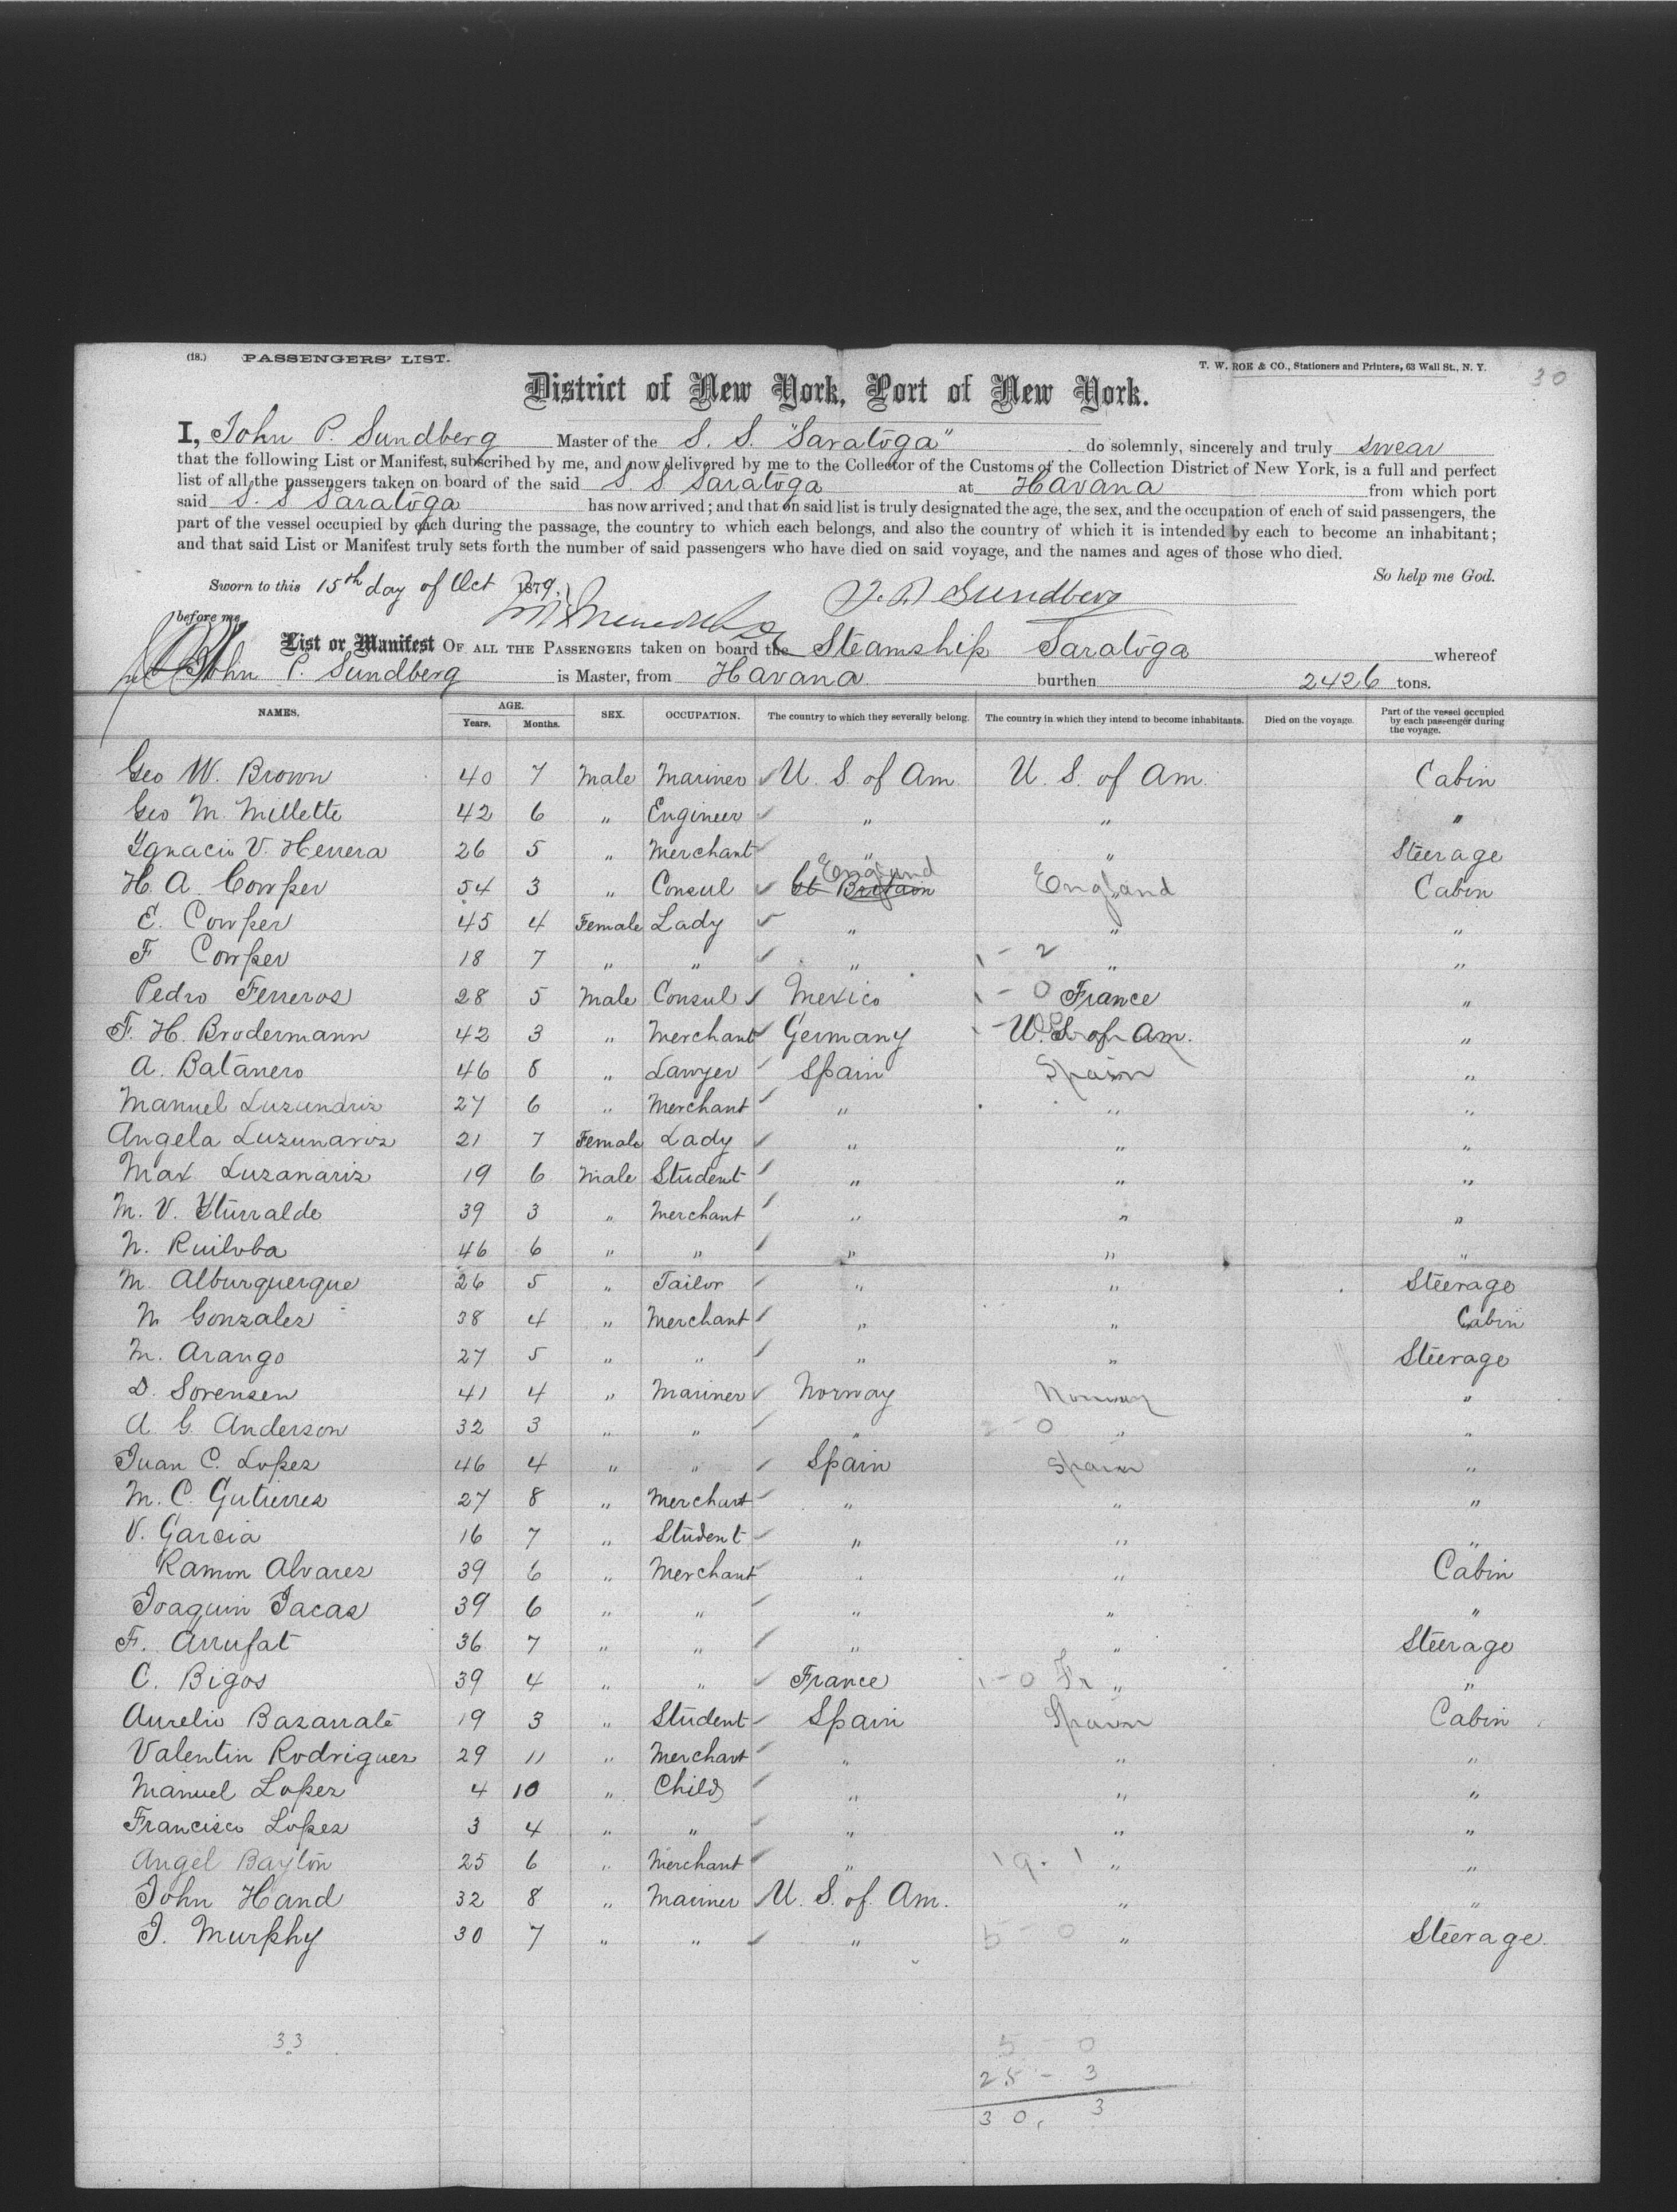 (18.) PASSENGERS' LIST. T. W. ROE & CO., Stationers and Printers, 63 Wall St., N. Y. 30
District of New York, Port of New York.
I, John P. Sundberg Master of the S. S. "Saratoga" do solemnly, sincerely and truly swear
that the following List or Manifest, subscribed by me, and now delivered by me to the Collector of the Customs of the Collection District of New York, is a full and perfect
list of all the passengers taken on board of the said S. S Saratoga at Havana from which port
said S. S Saratoga has now arrived; and that on said list is truly designated the age, the sex, and the occupation of each of said passengers, the
part of the vessel occupied by each during the passage, the country to which each belongs, and also the country of which it is intended by each to become an inhabitant;
and that said List or Manifest truly sets forth the number of said passengers who have died on said voyage, and the names and ages of those who died.
So help me God.
Sworn to this 15th day of Oct 1879. J. P Sundberg
before me
List or Manifest OF ALL THE PASSENGERS taken on board the Steamship Saratoga whereof
John P. Sundberg is Master, from Havana burthen 2426 tons.
NAMES. AGE. Years. Months. SEX. OCCUPATION. The country to which they severally belong. The country in which they intend to become inhabitants. Died on the voyage. Part of the vessel occupied by each passenger during the voyage.
Geo W. Brown 40 7 Male Mariner U. S. of Am. U. S. of Am. Cabin
Geo M. Millette 42 6 " Engineer " " "
Ignacio V. Herrera 26 5 " Merchant " " Steerage
H. A. Cowper 54 3 " Consul Gt Britain England England Cabin
E. Cowper 45 4 Female Lady " " "
F Cowper 18 7 " " " 1 - 2 " "
Pedro Ferreros 28 5 Male Consul Mexico 1 - 0 France "
F. H. Brodermann 42 3 " Merchant Germany U. S. of Am. "
A. Batanero 46 8 " Lawyer Spain Spain "
Manuel Luzunariz 27 6 " Merchant " " "
Angela Luzunariz 21 7 Female Lady " " "
Max Luzanariz 19 6 Male Student " " "
M. V. Yturralde 39 3 " Merchant " " "
N. Ruiloba 46 6 " " " " "
M. Alburquerque 26 5 " Tailor " " Steerage
N. Gonzales 38 4 " Merchant " " Cabin
M. Arango 27 5 " " " " Steerage
D. Sorensen 41 4 " Mariner Norway Norway "
A G Anderson 32 3 " " " 2 - 0 " "
Juan C. Lopez 46 4 " " Spain Spain "
M. C. Gutierres 27 8 " Merchant " " "
V. Garcia 16 7 " Student " " "
Ramon Alvarez 39 6 " Merchant " " Cabin
Joaquin Jacas 39 6 " " " " "
F. Arrufat 36 7 " " " " Steerage
C. Bigos 39 4 " " France 1 - 0 Fr " "
Aurelio Bazarrate 19 3 " Student Spain Spain Cabin
Valentin Rodriguez 29 11 " Merchant " " "
Manuel Lopez 4 10 " Child " " "
Francisco Lopez 3 4 " " " " "
Angel Baylon 25 6 " Merchant " 19 - 1 " "
John Hand 32 8 " Mariner U. S. of Am. " "
J. Murphy 30 7 " " " 5 - 0 " Steerage.
33 5 - 0
25 - 3
30, 3